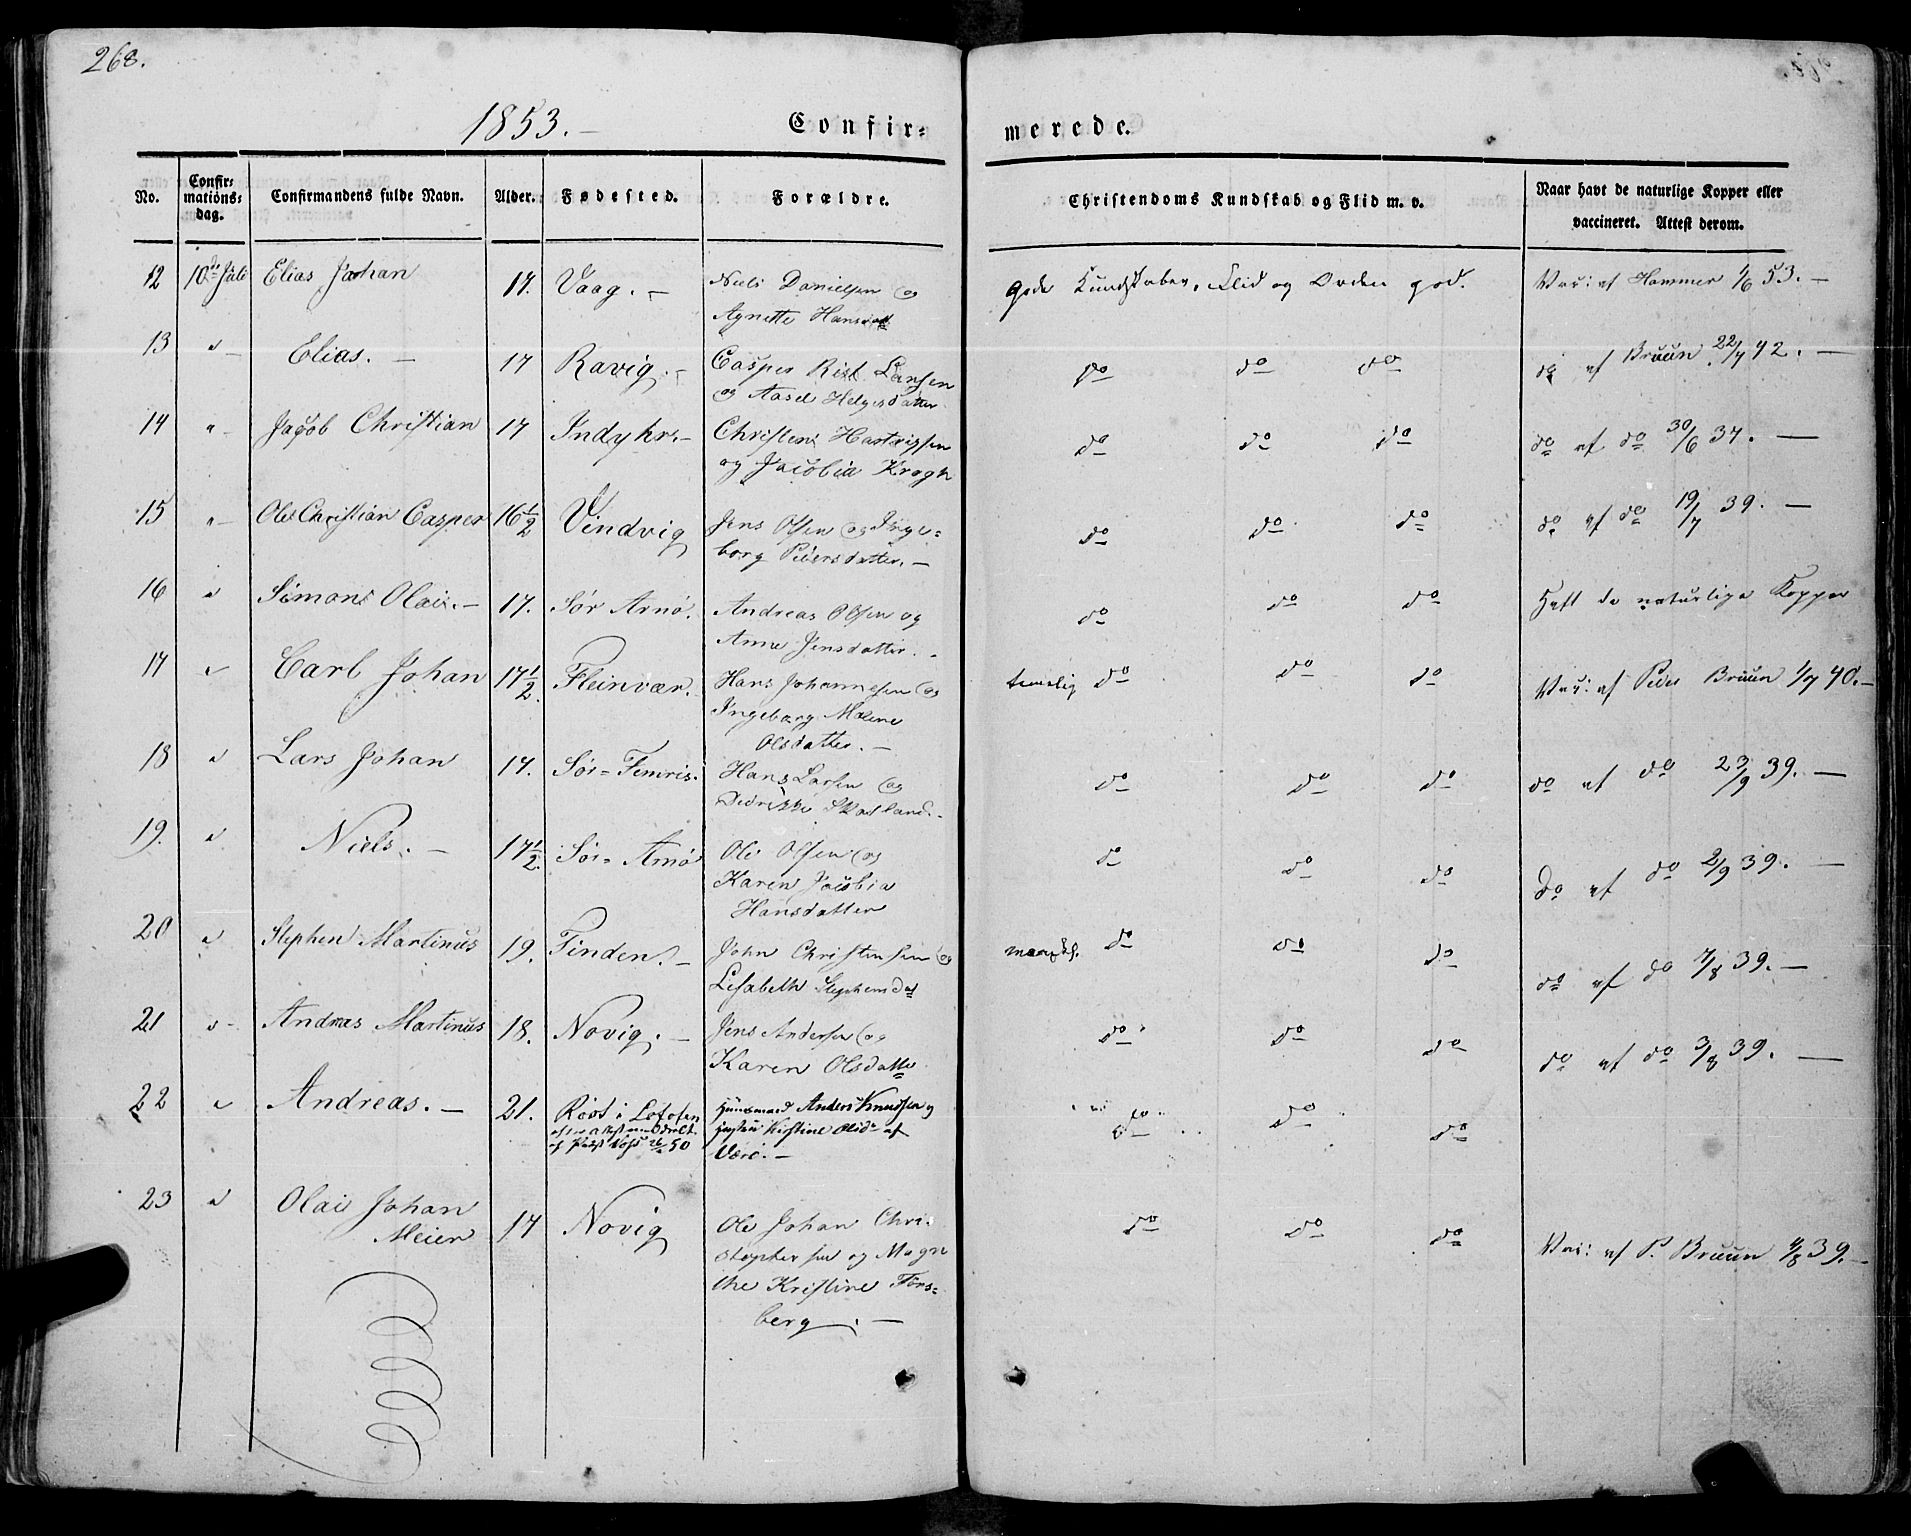 268.
1853. Confir-
merede.
No. Confir-mations-dag. Confirmandens fulde Navn. Alder. Fødested. Forældre. Christendoms Kundskab og Flid m. v. Naar havt de naturlige Kopper eller vaccineret. Attest derom.
12 10de Juli Elias Johan 17. Vaag. Niels Danielsen og Gode Kundskaber, Flid og Orden god. Vac: af Hammer 1/6 53.
Agnette Hansdatt
13 " Elias. 17 Ravig. Casper Rist Larsen do do do do af Bruun 22/7 42.
og Aasel Helgesdatter
14 " Jacob Christian 17 Indyhr. Christen Hartvigsen do do do do af do 30/6 37.
og Jacobia Krogh
15 " Ole Christian Casper 16½ Vindvig Jens Olsen og Inge- do do do do af do 19/7 39.
borg Pedersdatter.
16 " Simon Olai. 17. Sør Arnø. Andreas Olsen og do do do Haft de naturlige Kopper
Anne Jensdatter.
17 " Carl Johan 17½ Fleinvær. Hans Johannesen og temelig do do do Vac: af Peder Bruun 1/7 40.
Ingeborg Malene
Olsdatter.
18 " Lars Johan 17. Sør-Femris. Hans Larsen og do do do do af do 23/9 39.
Didrikke Skotland.
19. " Niels. 17½ Sør-Arnø Ole Olsen og do do do do af do 2/9 39.
Karen Jacobia
Hansdatter
20 " Stephen Martinus 19. Tinden. John Christensen og do do do do af do 7/8 39.
Lisabeth Stephensdat
21 " Andreas Martinus 18. Novig. Jens Andersen og do do do do af do 3/8 39.
Karen Olsdatte
22 " Andreas. 21. Røst i Lofoten Huusmand Anders Knudsen og do do do
Kirstine Olsd af
Værø.
23 " Olai Johan 17 Novig Ole Johan Chri- do do do Vac: af P. Bruun 4/8 39.
Meier stophersen og Magre
the Kristine Fors-
berg.